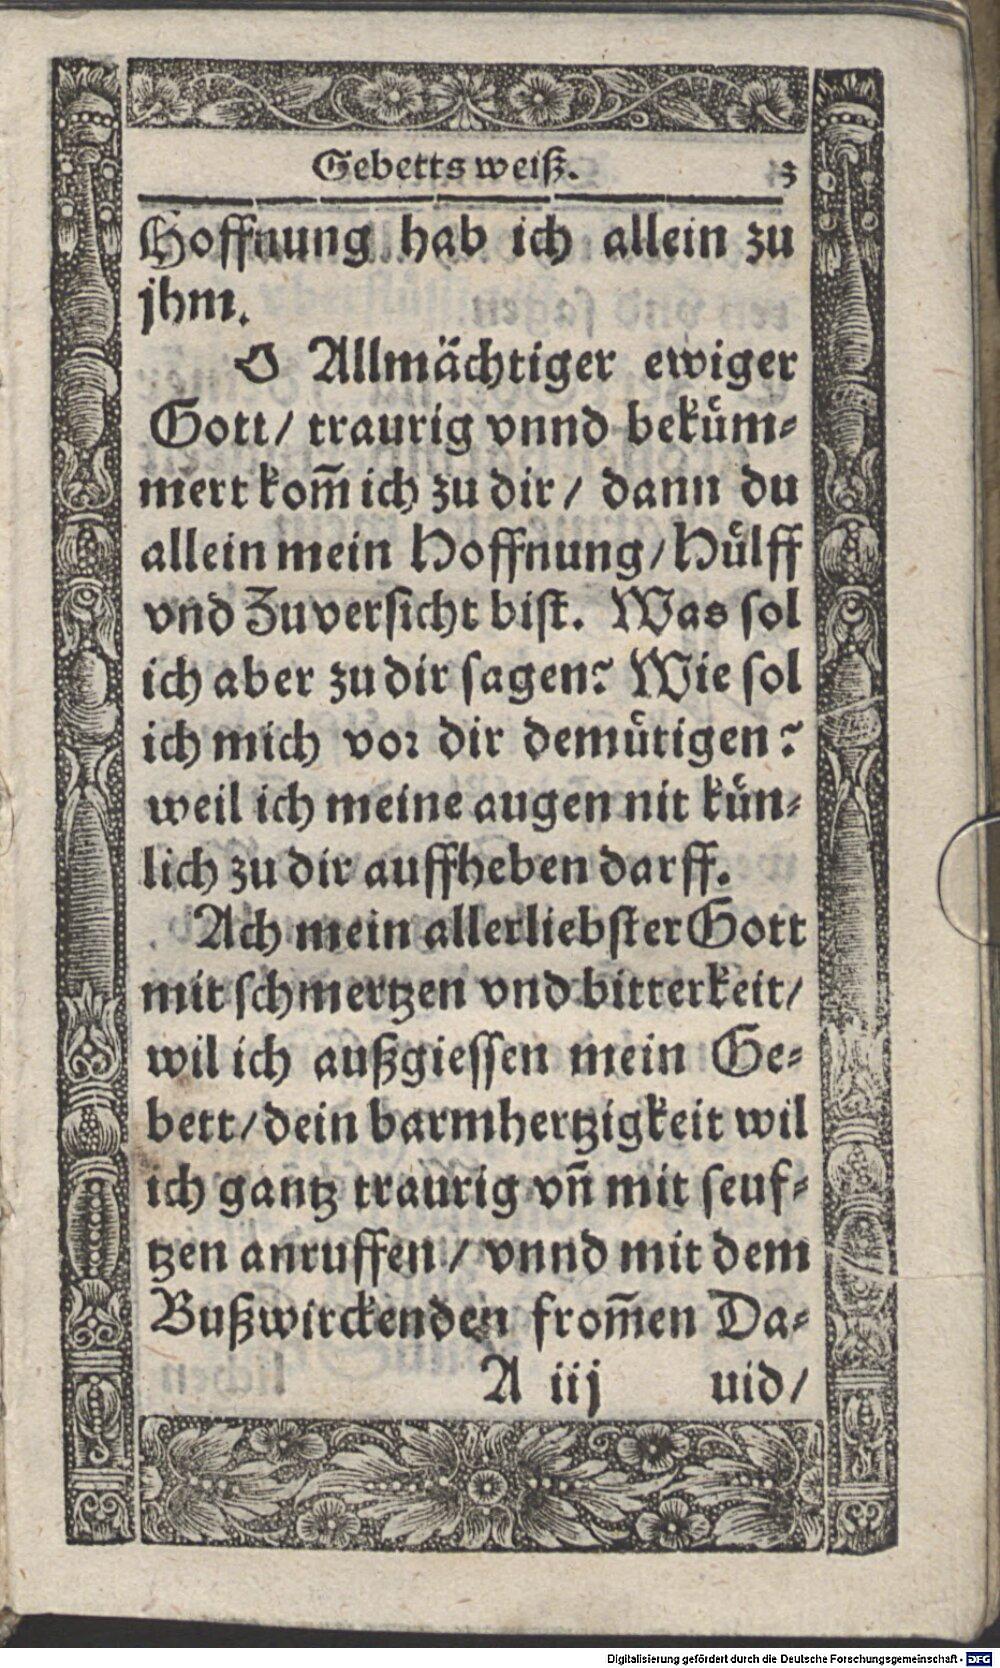 Gebetts weiß. 3
Hoffnung hab ich allein zu
jhm.
O Allmächtiger ewiger
Gott/ traurig vnnd bekuͤm⸗
mert kom̃ ich zu dir/ dann du
allein mein Hoffnung/ Huͤlff
vnd Zuversicht bist. Was sol
ich aber zu dir sagen? Wie sol
ich mich vor dir demuͤtigen?
weil ich meine augen nit kuͤn⸗
lich zu dir auffheben darff.
Ach mein allerliebster Gott
mit schmertzen vnd bitterkeit/
wil ich außgiessen mein Ge⸗
bett/ dein barmhertzigkeit wil
ich gantz traurig vñ mit seuf⸗
tzen anruffen/ vnnd mit dem
Bußwirckenden from̃en Da⸗
A iij uid/
Digitalisierung gefördert durch die Deutsche Forschungsgemeinschaft - DFG